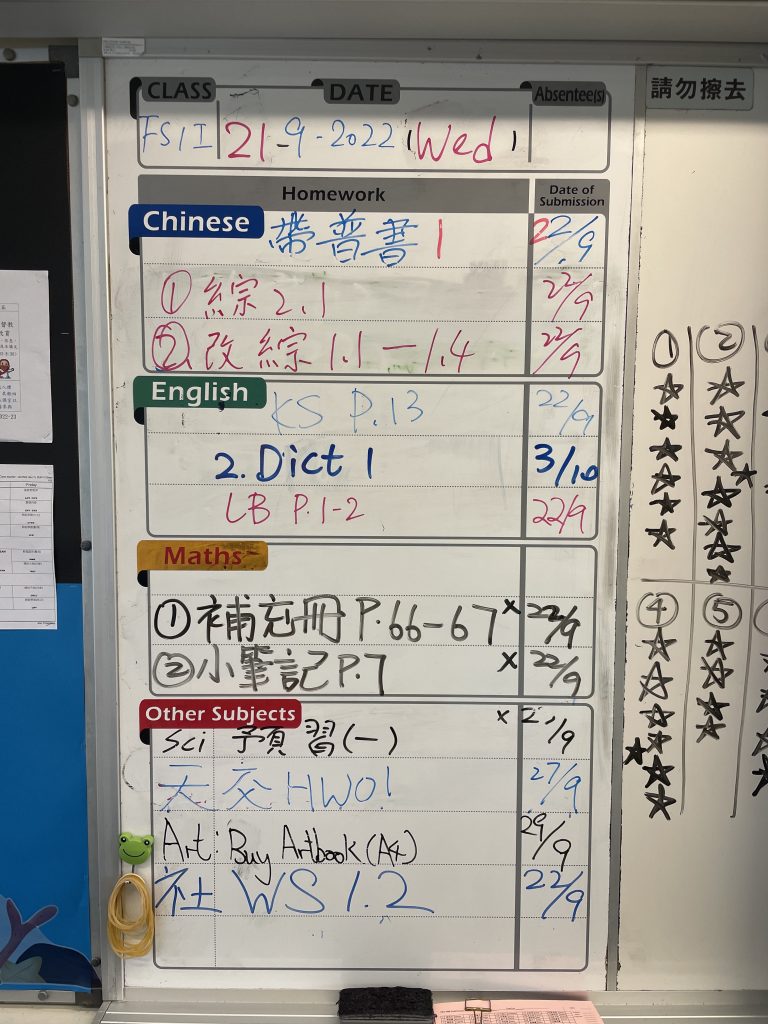 CLASS DATE Absentee(s)
21-9-2022 (Wed)
Homework Date of Submission
Chinese 帶普書 1 22/9
① 綜 2.1 22/9
② 改綜 1.1-1.4 22/9
English KS P.13 22/9
2. Dict 1 3/10
LB P.1-2 22/9
Maths
① 補充冊 P.66-67 x 22/9
② 小筆記 P.7 x 22/9
Other Subjects
Sci 預習(一) x 2 /9
天交 HW0! 27/9
Art: Buy Artbook (A4) 29/9
社 WS 1.2 22/9
請勿擦去
① ②
④ ⑤
Friday